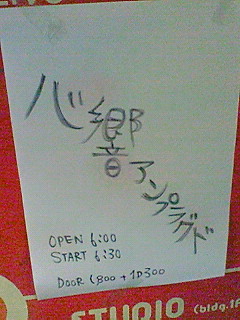 心響アンプラグド
OPEN 6:00
START 6:30
DOOR 1,800 + 1D300
STUDIO (bldg.1F